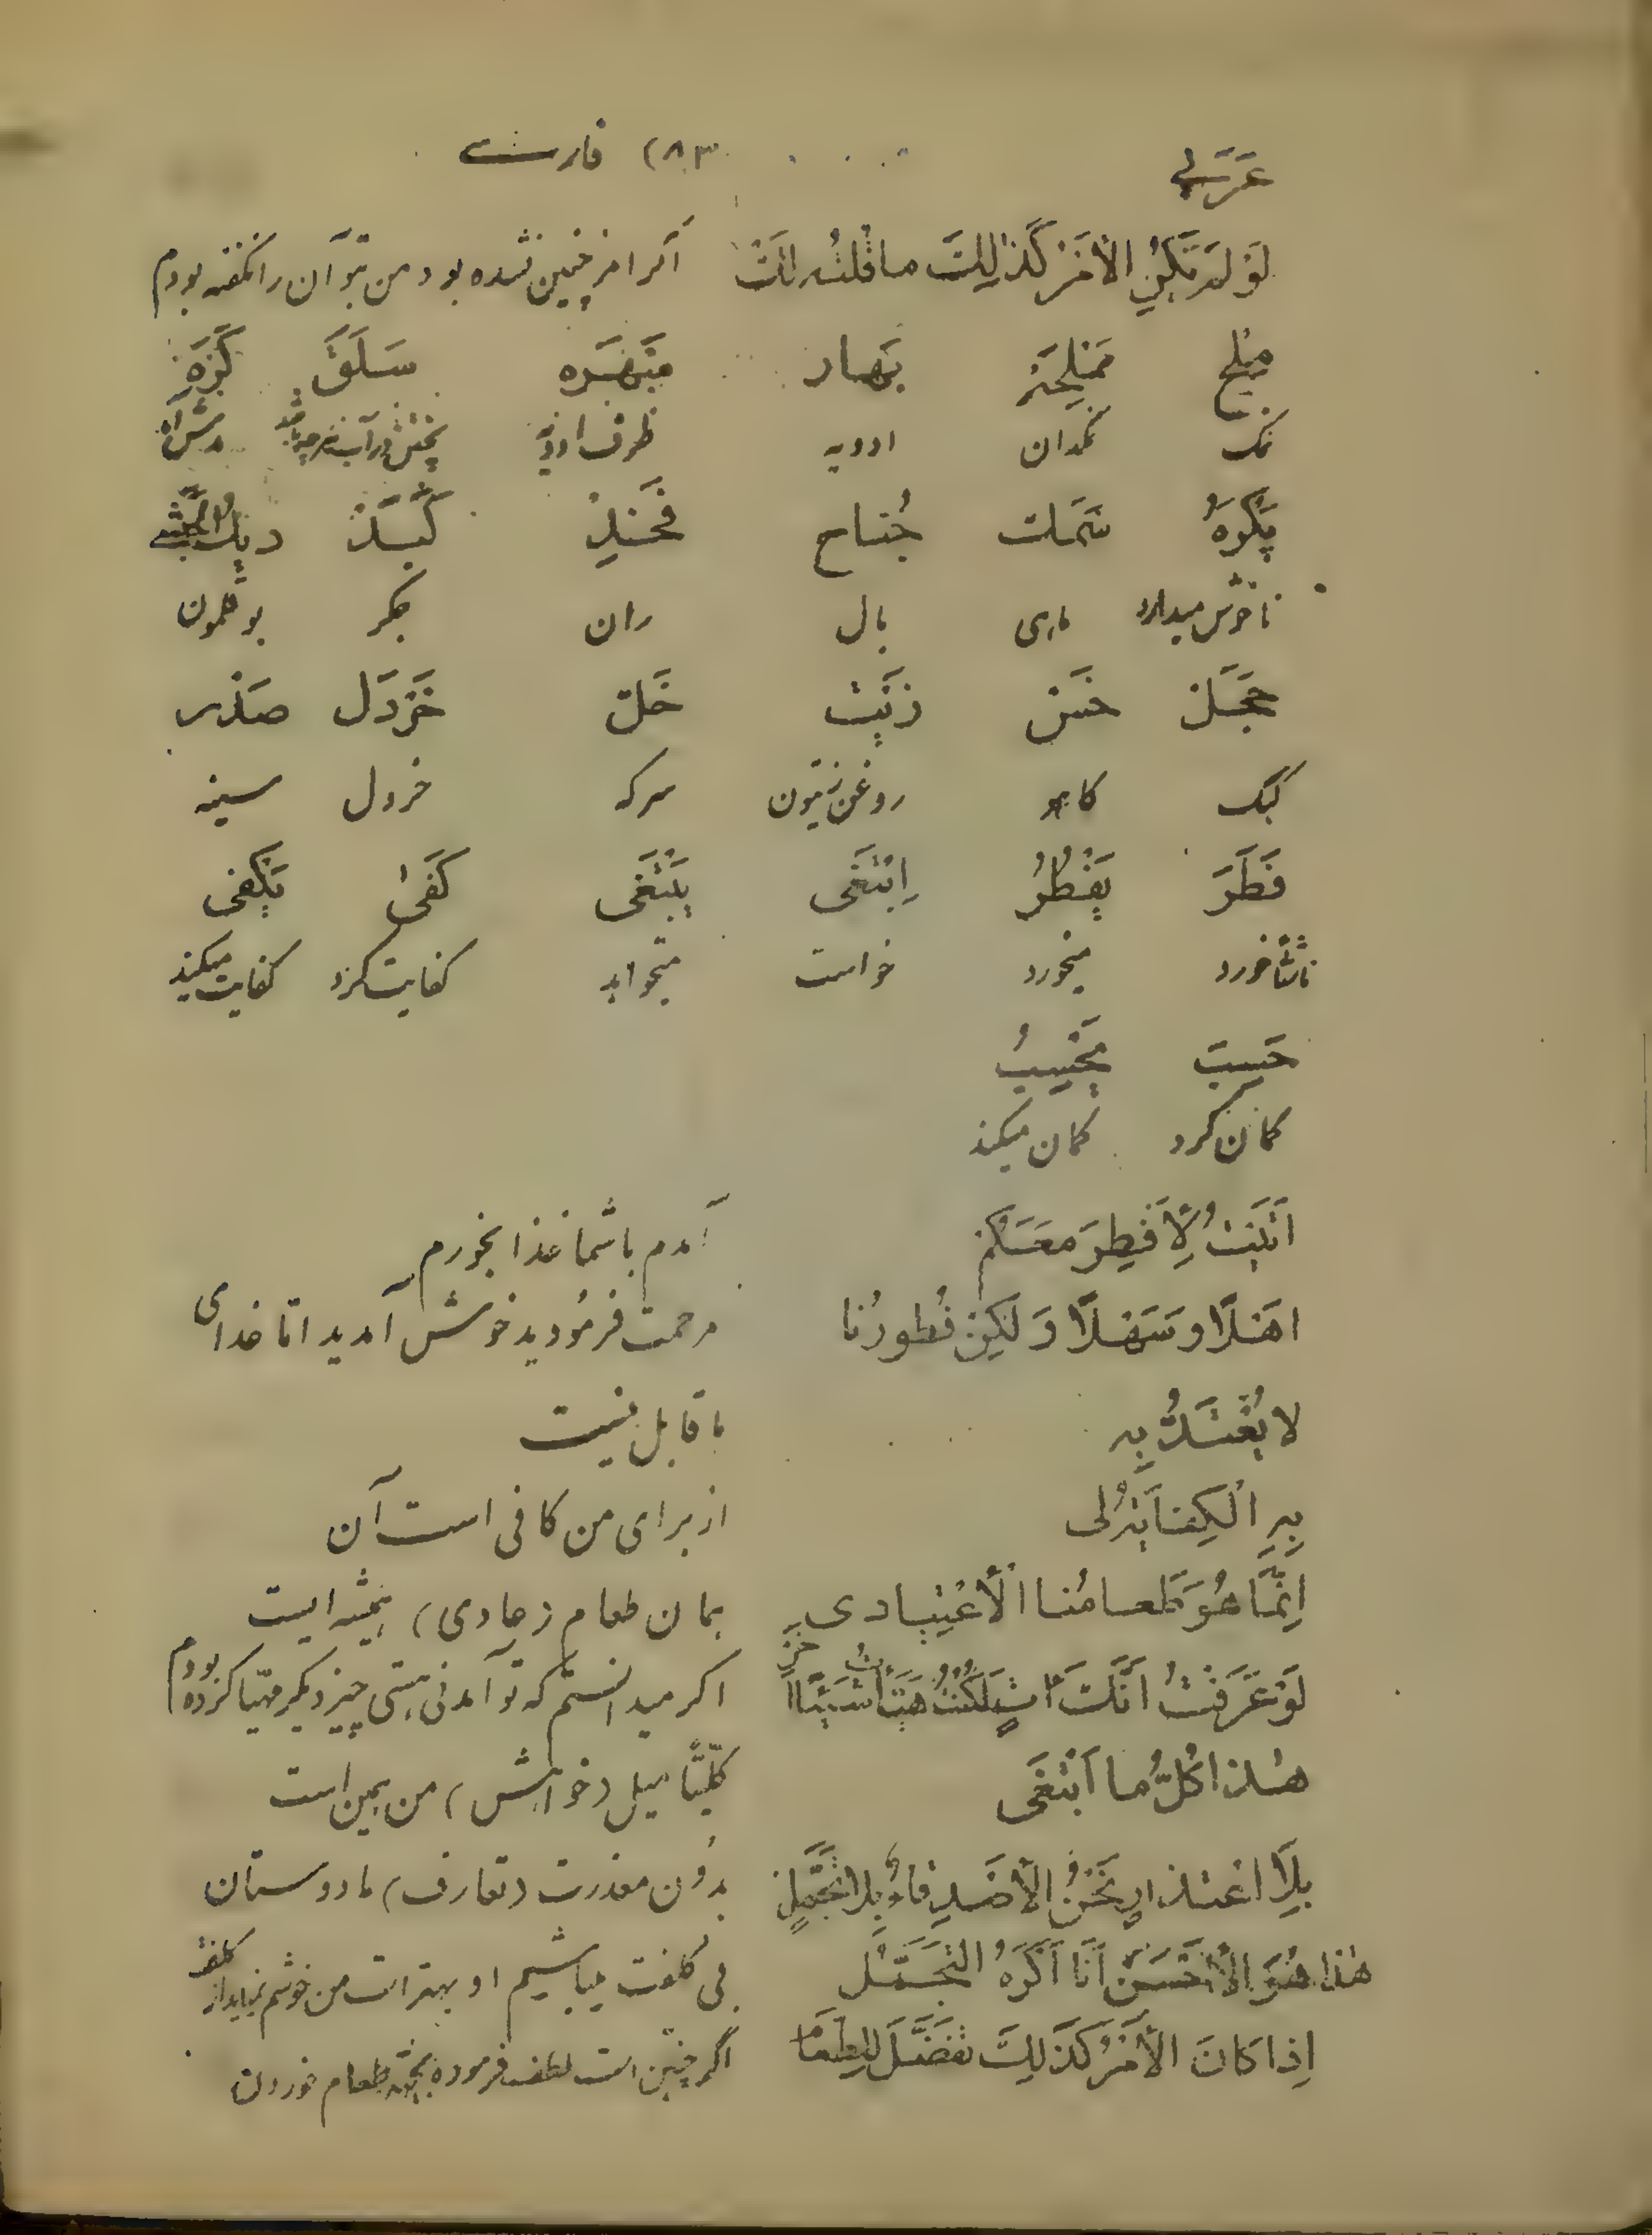 عَرَبی (۸۳ فارسی
لَوْ لَمْ تَكُنِ الْأَمْرُ كَذٰلِكَ ما قُلْتُهُ لَكَ اگر امر چنین نشده بود من بتو آن را نگفته بودم
مِلْح مَمْلَحَة بَهار مَبْهَرَه سَلَقَ كَرِهَ
نمک نمکدان ادویه ظرف ادویه پختش در آب
يَكْرَهُ سَمَك جُناح فَخْذ كَبَد ديك
ناخوش میدارد ماهی بال ران جگر بوقلمون
حَجَل خَسّ زَيْت خَلّ خَرْدَل صَدْر
کبک کاهو روغن زیتون سرکه خردل سینه
فَطَرَ يَفْطُرُ اِبْتَغَى يَبْتَغَى كَفىٰ يَكْفى
ناشتا خورد میخورد خواست میخواهد کفایت کرد کفایت میکند
حَسِبَ يَحْسِبُ
گمان کرد گمان میکند
اَتَيْتُ لِأَفْطِرَ مَعَكُمْ آمدم با شما غذا بخورم
اَهْلًا وَ سَهْلًا وَ لٰكِنْ فُطورُنا مرحمت فرمودید خوش آمدید امّا غذای
لا يُعْتَدُّ بِهِ ما قابل نیست
بِهِ الْكِفايَةُ لى از برای من کافی است آن
اِنَّمَا هُوَ طَعامُنا الْأعْتِيادى همان طعام (عادی) همیشه ایست
لَوْ عَرَفْتُ اَنَّكَ آتٍ لَكُنْتُ هَيَّأْتُ شَيْئًا آخَرَ اگر میدانستم که تو آمدنی هستی چیز دیگر مهیّا کرده بودم
هٰذا كُلُّ ما اَبْتَغَى کلّیتًا میل (خواهش) من همین است
بِلَا اعْتذارٍ نَحْنُ الْأَصْدِقاءُ بِلا تَجَمُّلٍ بدُون معذرت (تعارف) ما دوستان
هٰذا هُوَ الْأَحْسَنُ اَنَا اَكْرَهُ التَّجَمُّل بی کلفت میباشیم او بهتر است من خوشم نمیاید از کلفت
اِذا كانَ الْأَمْرُ كَذٰلِكَ تَفَضَّلْ لِلطَّعام اگر چنین است لطف فرموده بجهة طعام خوردن